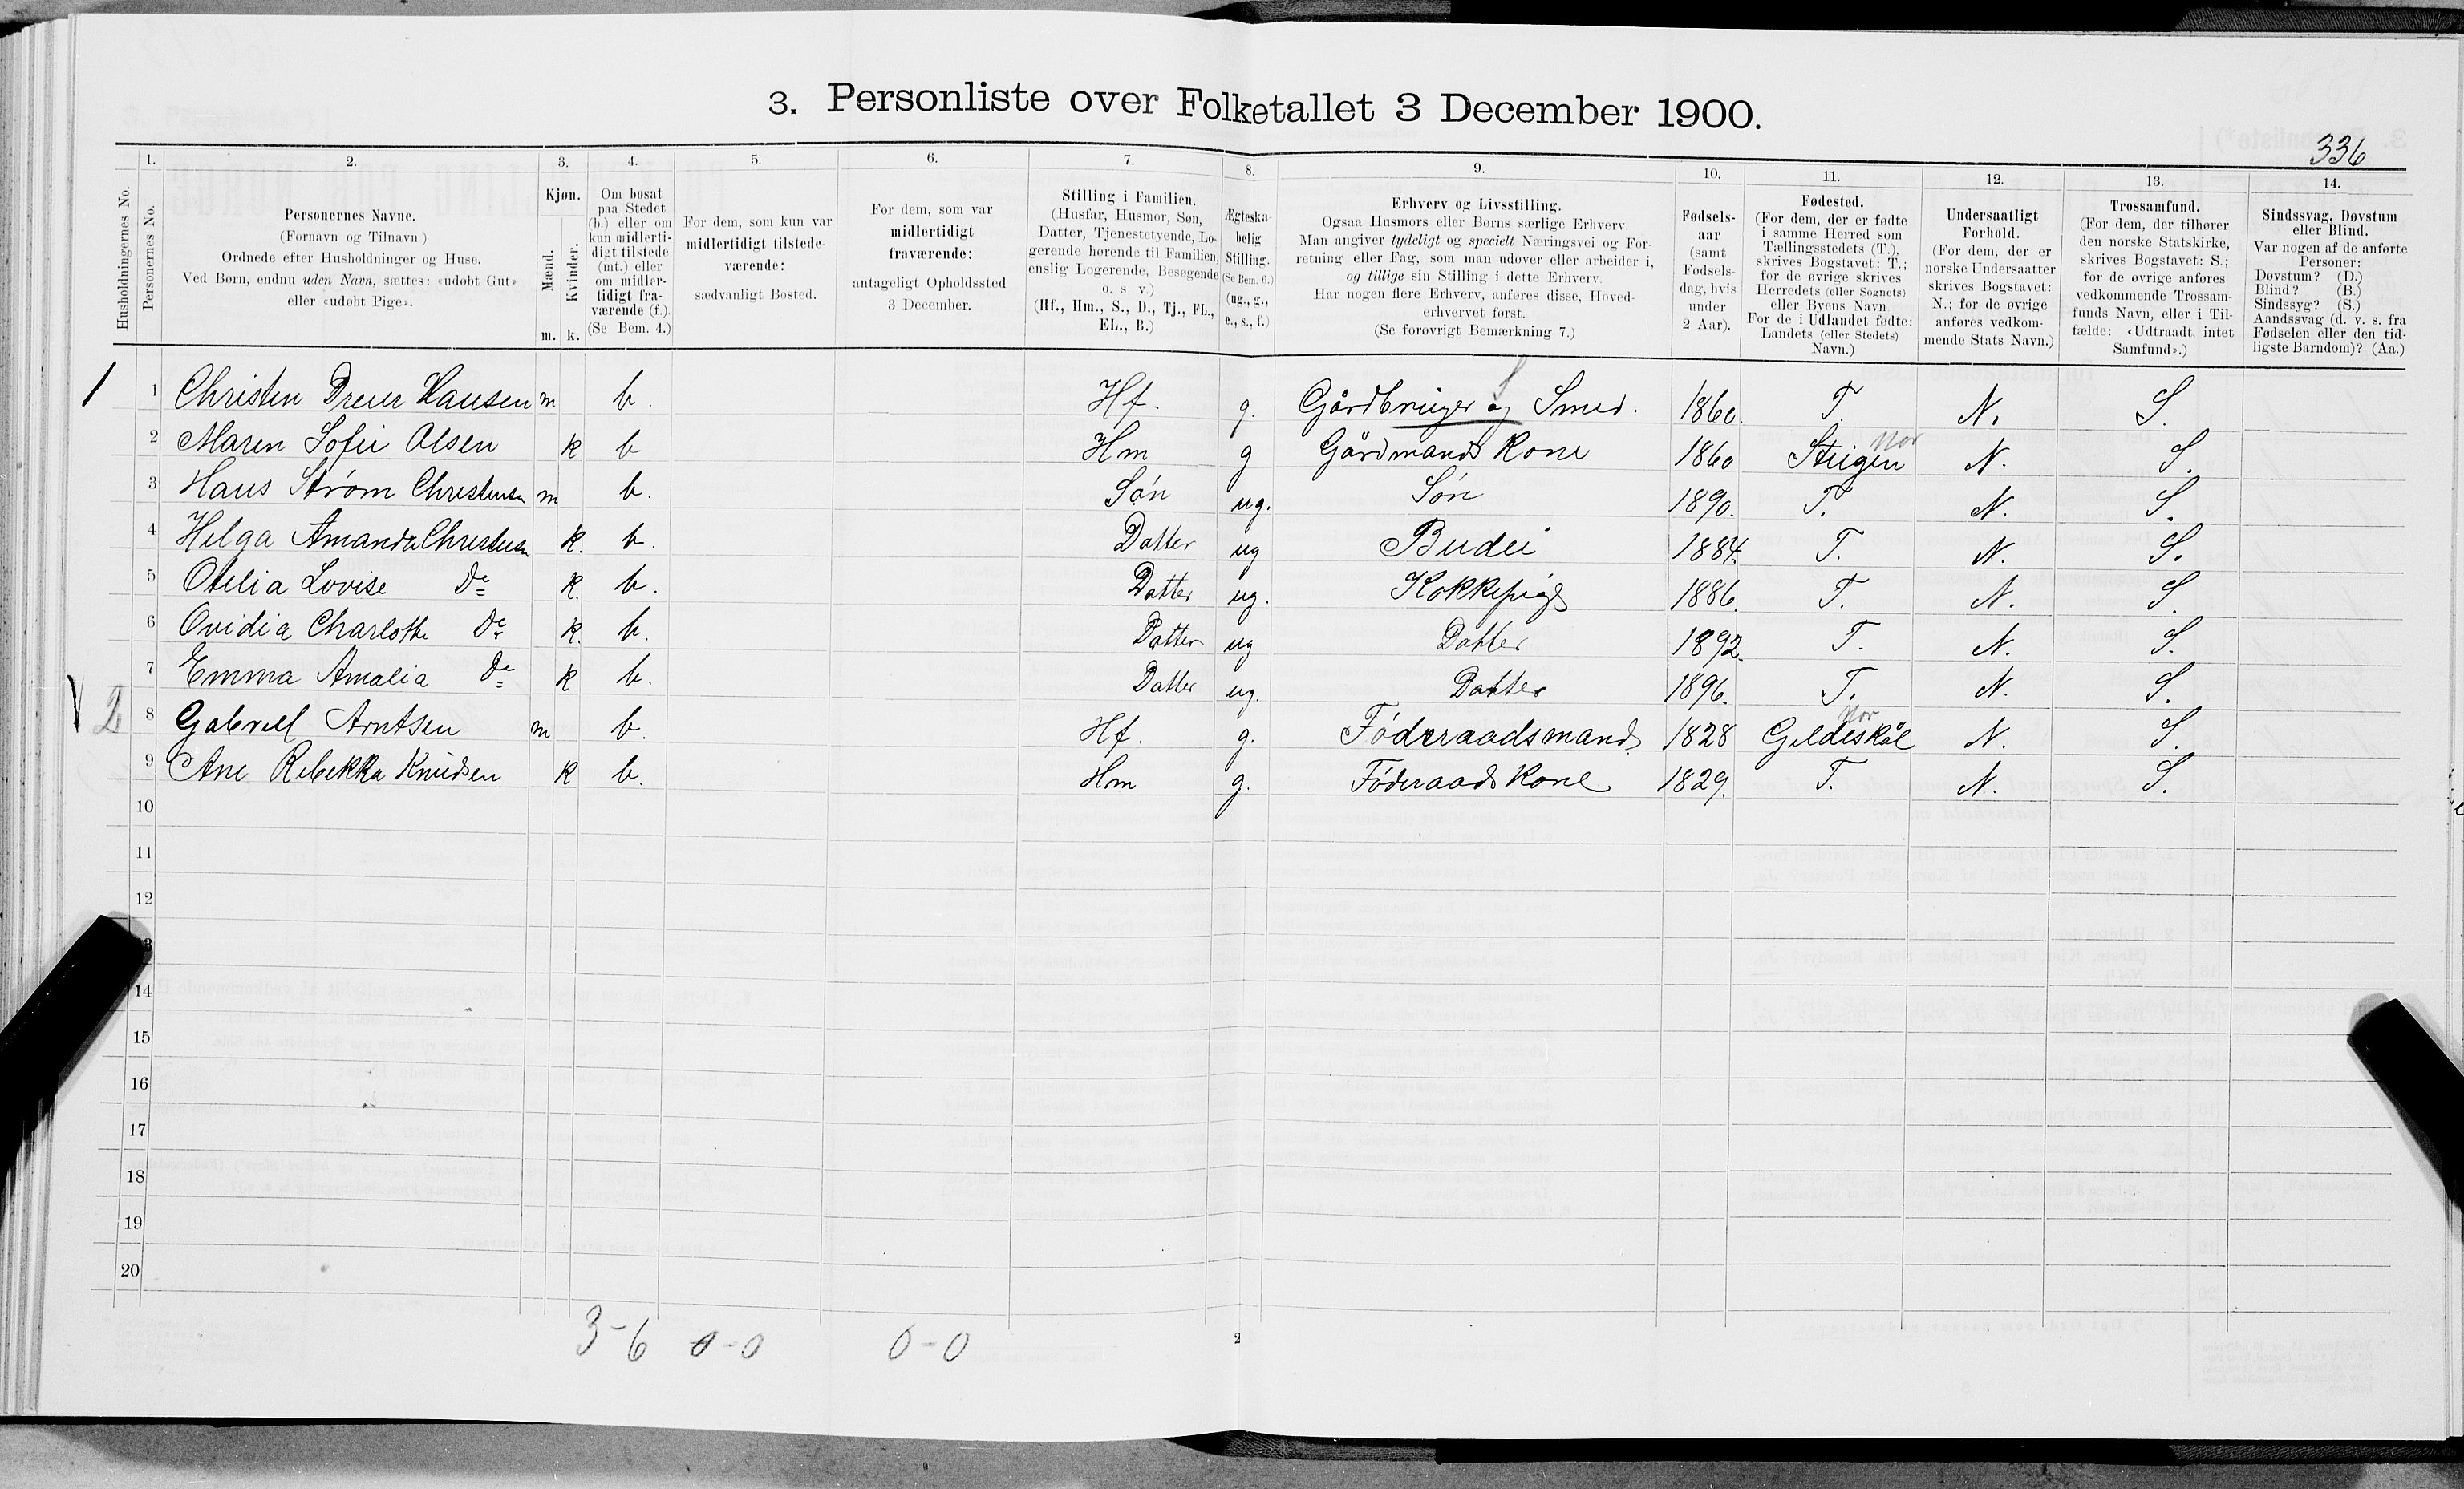 3. Personliste over Folketallet 3 December 1900.
336
1. 2. 3. 4. 5. 6. 7. 8. 9. 10. 11. 12. 13. 14.
Husholdningernes No.
Personernes No.
Personernes Navne.
(Fornavn og Tilnavn)
Ordnede efter Husholdninger og Huse.
Ved Børn, endnu uden Navn, sættes: «udøbt Gut»
eller «udøbt Pige».
Kjøn.
Mænd.
Kvinder.
m. k.
Om bosat
paa Stedet
(b.) eller om
kun midlerti-
digt tilstede
(mt.) eller
om midler-
tidigt fra-
værende (f.).
(Se Bem. 4.)
For dem, som kun var
midlertidigt tilstede-
værende:
sædvanligt Bosted.
For dem, som var
midlertidigt
fraværende:
antageligt Opholdssted
3 December.
Stilling i Familien.
(Husfar, Husmor, Søn,
Datter, Tjenestetyende, Lo-
gerende hørende til Familien,
enslig Logerende, Besøgende
o. s v.)
(Hf., Hm., S., D., Tj., FL.,
EL., B.)
Ægteska-
belig
Stilling.
(Se Bem. 6.)
(ug., g.,
e., s., f.)
Erhverv og Livsstilling.
Ogsaa Husmors eller Børns særlige Erhverv.
Man angiver tydeligt og specielt Næringsvei og For-
retning eller Fag, som man udøver eller arbeider i,
og tillige sin Stilling i dette Erhverv.
Har nogen flere Erhverv, anføres disse, Hoved-
erhvervet først.
(Se forøvrigt Bemærkning 7.)
Fødsels-
aar
(samt
Fødsels-
dag, hvis
under
2 Aar).
Fødested.
(For dem, der er fødte
i samme Herred som
Tællingsstedets (T.),
skrives Bogstavet: T.;
for de øvrige skrives
Herredets (eller Sognets)
eller Byens Navn
For de i Udlandet fødte:
Landets (eller Stedets)
Navn.)
Undersaatligt
Forhold.
(For dem, der er
norske Undersaatter
skrives Bogstavet:
N.; for de øvrige
anføres vedkom-
mende Stats Navn.)
Trossamfund.
(For dem, der tilhører
den norske Statskirke,
skrives Bogstavet: S.;
for de øvrige anføres
vedkommende Trossam-
funds Navn, eller i Til-
fælde: «Udtraadt, intet
Samfund».)
Sindssvag, Døvstum
eller Blind.
Var nogen af de anførte
Personer:
Døvstum? (D.)
Blind? (B.)
Sindssyg? (S.)
Aandssvag (d. v. s. fra
Fødselen eller den tid-
ligste Barndom)? (Aa.)
1 1 Christen Dreier Hansen m b. Hf. g. Gårdbruger og Smed. 1860. T. N. S.
2 Maren Sofie Olsen k b Hm g Gårdmands Kone 1860 Steigen Nor N. S.
3 Hans Strøm Christensen m b. Søn ug. Søn 1890. T. N. S.
4 Helga Amanda Christensen k. b. Datter ug Budei 1884. T. N. S.
5 Otelia Lovise Do k. b. Datter ug. Kokkepige 1886. T. N. S.
6 Ovidia Charlotte Do k. b. Datter ug Datter 1892. T. N. S.
7 Emma Amalia Do k b. Datter ug. Datter 1896. T. N. S.
2 8 Gabriel Arntsen m b. Hf. g. Föderaadsmand 1828 Gildeskål Nor N. S.
9 Ane Rebekka Knudsen k b. Hm g. Föderaads Kone 1829. T. N. S.
10
11
12
13
14
15
16
17
18
19
20
3-6 0-0 0-0
2